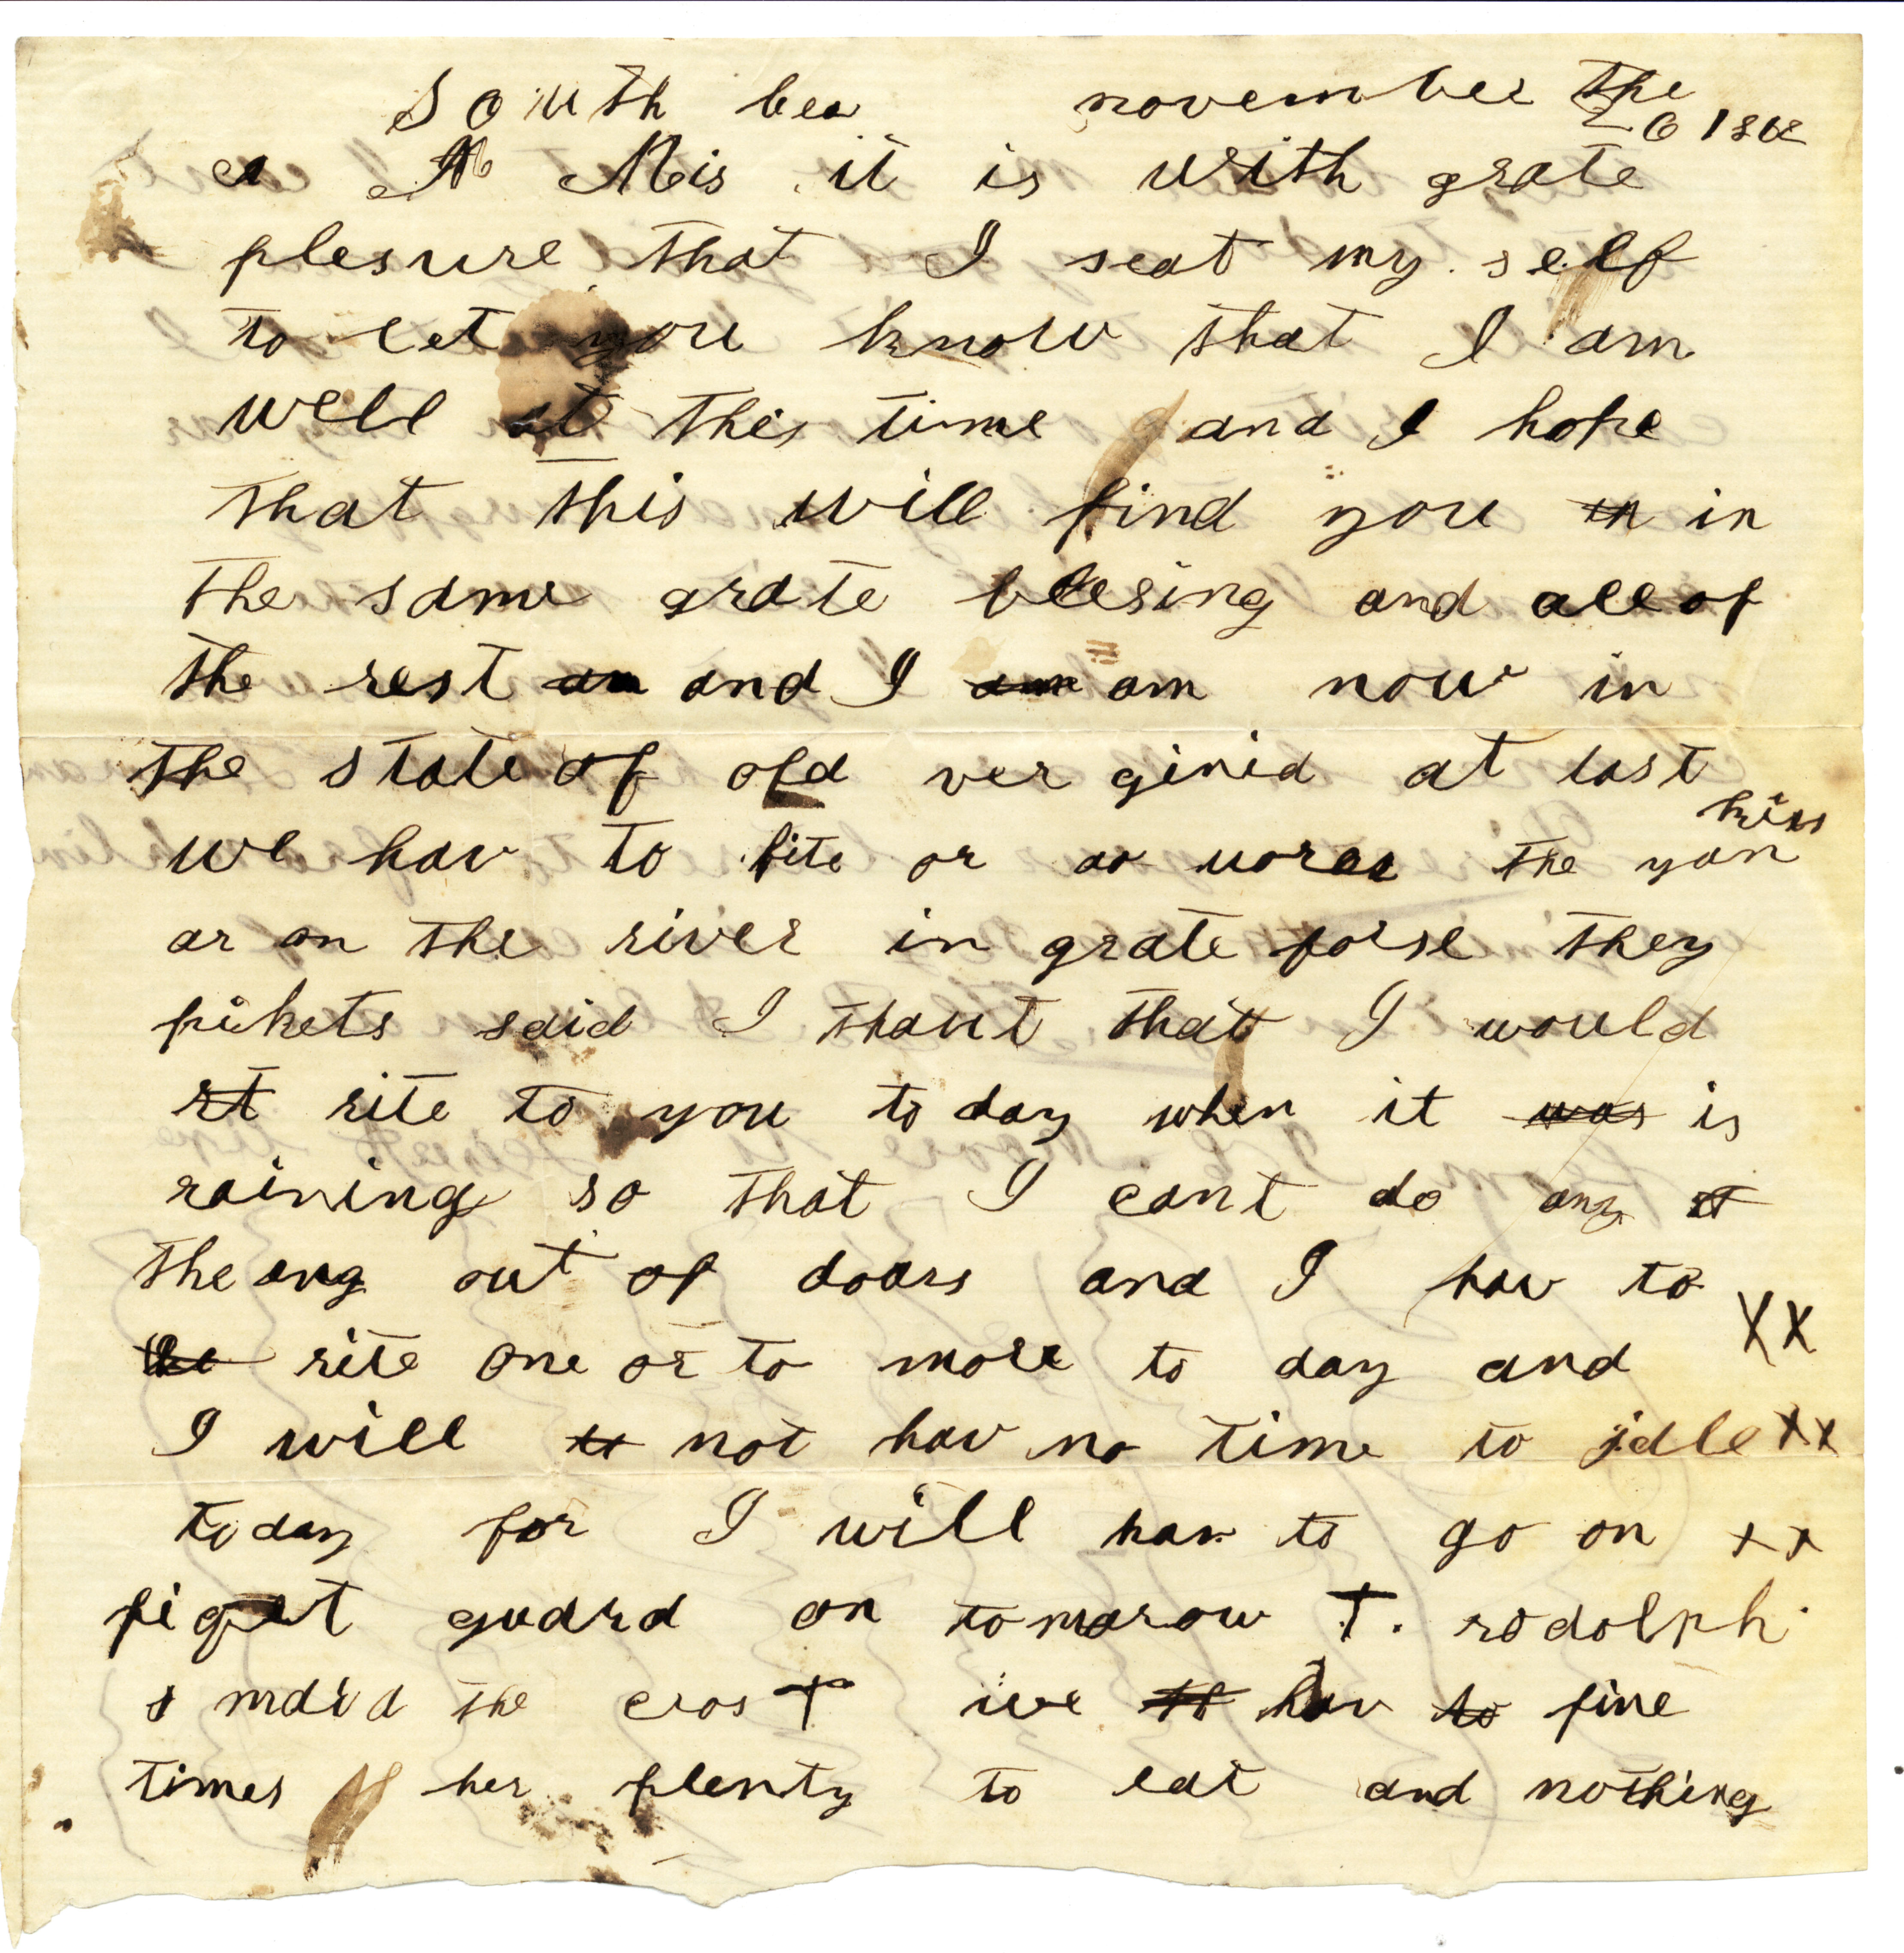 South bea november the
26 1862
a A Mis it is with grate
plesure that I seat my self
to let you know that I am
well at this time and I hope
that this will find you in in
the same grate blesing and all of
the rest an and I am am now in
the state of old ver ginia at last
we hav to fite or do the yan
kies
ar on the river in grate forse they
pikets said I thout that I would
rt rite to you to day when it was is
raining so that I cant do any
the ang out of doors and I hav to
rite one or to more to day and XX
I will not hav no time to idle XX
today for I will hav to go on XX
piget guard on tomarow T. rodolph
the cros we hav to fine
times her plenty to eat and nothing